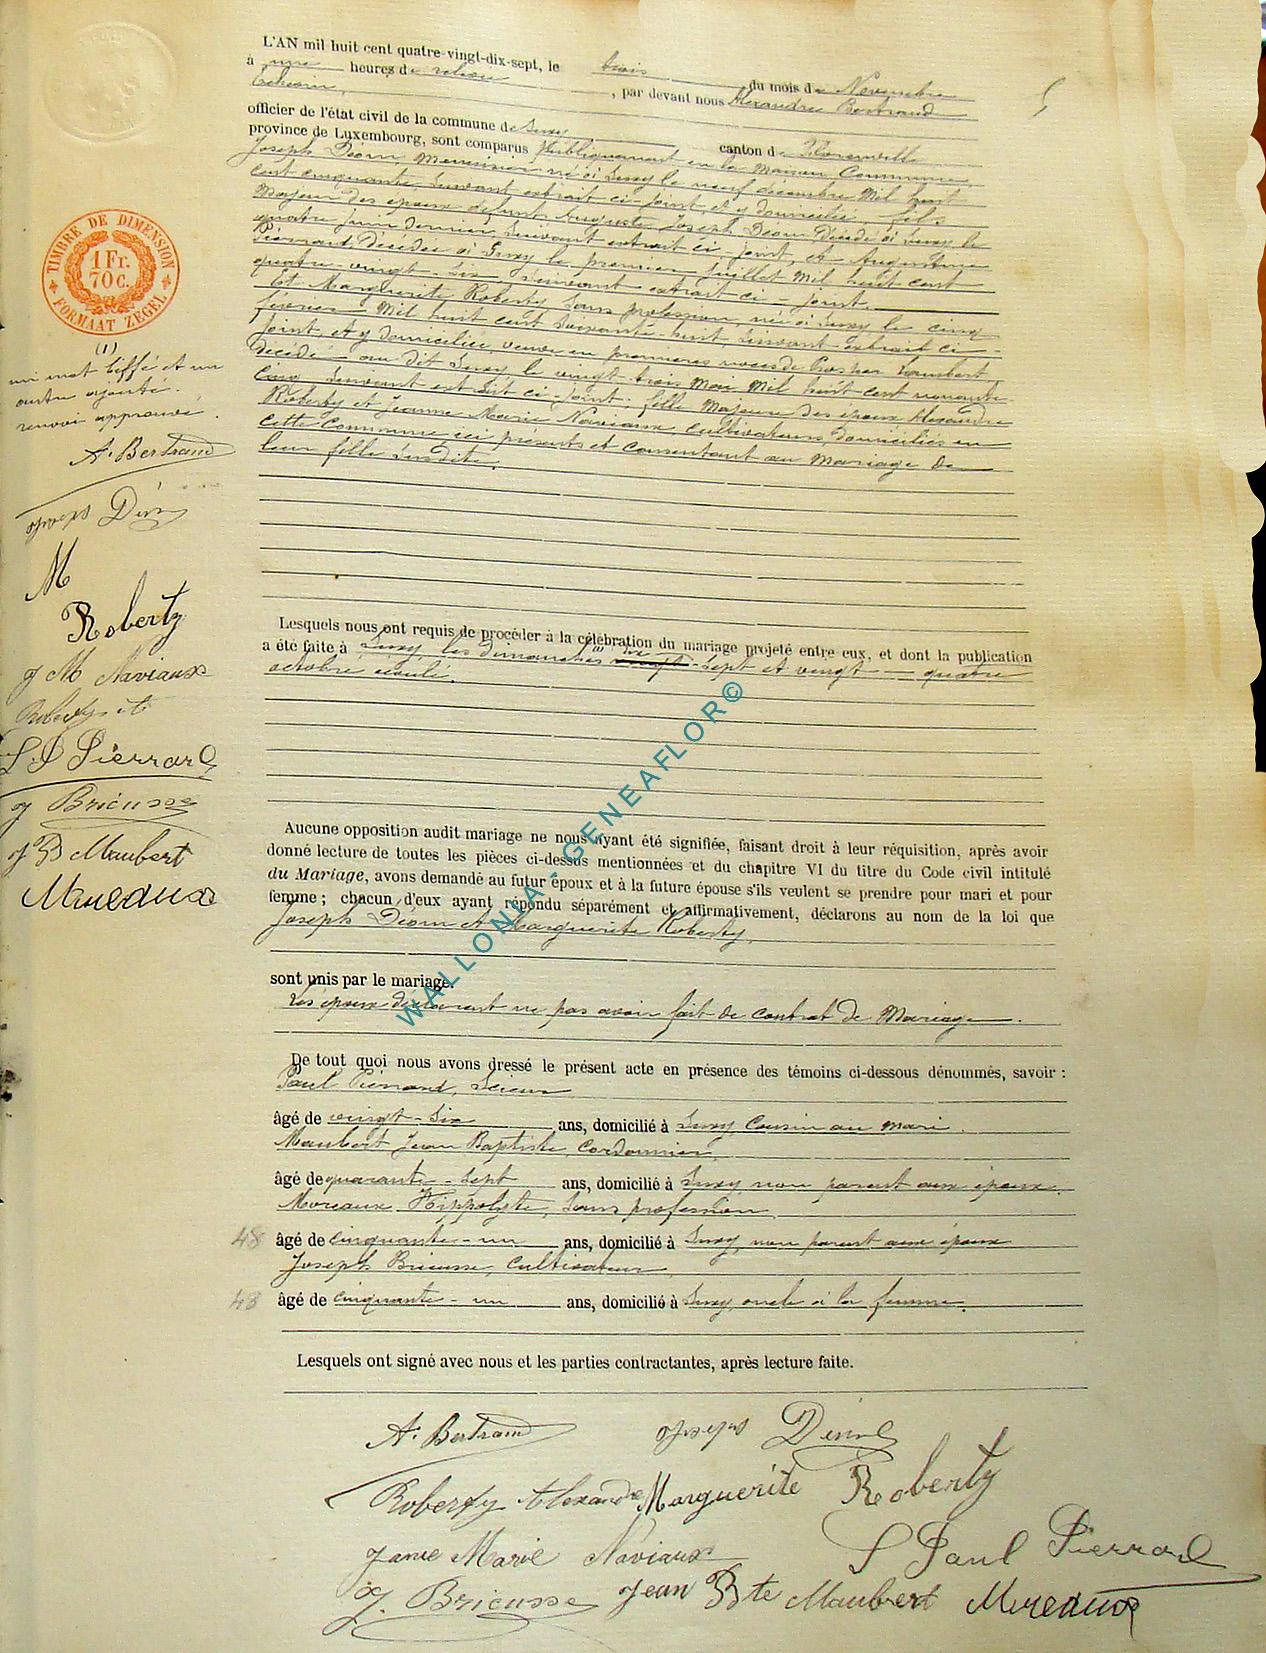 TIMBRE DE DIMENSION
1 Fr.
70 C.
FORMAAT ZEGEL
L'AN mil huit cent quatre-vingt-dix-sept, le trois du mois de Novembre
à une heures de relevée, par devant nous Alexandre Bertrand
Echevin,
officier de l'état civil de la commune de Suxy canton de Florenville
province de Luxembourg, sont comparus Publiquement en la Maison Commune,
Joseph Déom, Menuisier né à Suxy le neuf décembre Mil huit
cent cinquante, suivant extrait ci-joint, et y domicilié, fils
Majeur des époux défunts Auguste Joseph Déom décédé à Suxy le
quatre Juin dernier, suivant extrait ci-joint, et Augustine
Piérrard décédée à Suxy le premier Juillet Mil huit cent
quatre-vingt-six, suivant extrait ci-joint.
Et Marguerite Roberty, sans profession, née à Suxy, le cinq
février Mil huit cent soixante-huit, suivant extrait ci-
joint, et y domiciliée, veuve en premières noces de Prosper Lambert,
décédé au dit Suxy, le vingt-trois Mai Mil huit cent nonante
cinq suivant extrait ci-joint; fille Majeure des époux Alexandre
Roberty et Jeanne Marie Naviaux, cultivateurs, domiciliés en
cette Commune, ici présents et consentant au Mariage de
leur fille susdite.
(1)
un mot biffé et un
autre ajouté.
renvoi approuvé.
A. Bertrand
M
Roberty
J M Naviaux
Roberty
S. P Pierrard
J Bricusse
J B Maubert
Moreaux
Lesquels nous ont requis de procéder à la célébration du mariage projeté entre eux, et dont la publication
a été faite à Suxy, les dimanches (1) dix-sept et vingt-quatre
octobre écoulé.
Aucune opposition audit mariage ne nous ayant été signifiée, faisant droit à leur réquisition, après avoir
donné lecture de toutes les pièces ci-dessus mentionnées et du chapitre VI du titre du Code civil intitulé
du Mariage, avons demandé au futur époux et à la future épouse s'ils veulent se prendre pour mari et pour
femme ; chacun d'eux ayant répondu séparément et affirmativement, déclarons au nom de la loi que
Joseph Déom et Marguerite Roberty,
sont unis par le mariage.
Les époux déclarent ne pas avoir fait de contrat de Mariage.
De tout quoi nous avons dressé le présent acte en présence des témoins ci-dessous dénommés, savoir :
Paul Piérrard, Scieur
âgé de vingt-six ans, domicilié à Suxy, Cousin au mari.
Maubert Jean Baptiste, Cordonnier,
âgé de quarante-sept ans, domicilié à Suxy, non parent aux époux.
Moreaux Hippolyte, sans profession
48 âgé de cinquante-un ans, domicilié à Suxy, non parent aux époux
Joseph Bricusse, cultivateur
48 âgé de cinquante-un ans, domicilié à Suxy, oncle à la femme.
Lesquels ont signé avec nous et les parties contractantes, après lecture faite.
A. Bertrand
Roberty Alexandre Marguerite Roberty
Marie Naviaux S Paul Pierrard
J. Bricusse Jean Bte Maubert Moreaux
WALLONIA - GENEAFLOR©